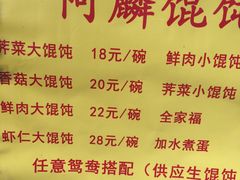 阿麟馄饨
荠菜大馄饨 18元/碗 鲜肉小馄饨
香菇大馄饨 20元/碗 荠菜小馄饨
鲜肉大馄饨 22元/碗 全家福
虾仁大馄饨 28元/碗 加水煮蛋
任意鸳鸯搭配(供应生馄饨